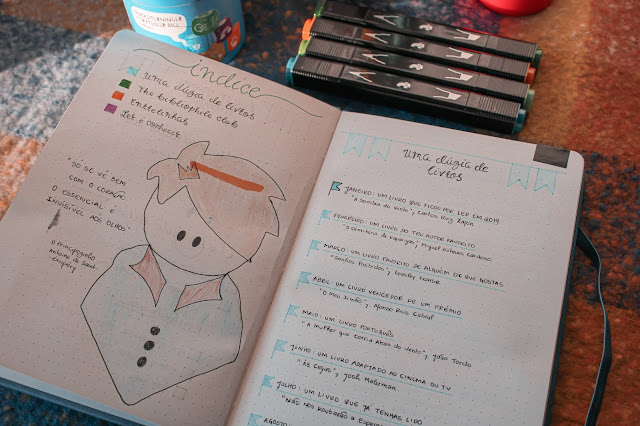 índice
Uma dúzia de livros
The bibliophile club
Entrelinhas
Ler é conhecer
"SÓ SE VÊ BEM
COM O CORAÇÃO.
O ESSENCIAL É
INVISÍVEL AOS OLHOS"
O Principezinho
Antoine de Saint-
Exupéry
Uma dúzia de
livros
JANEIRO: UM LIVRO QUE FICOU POR LER EM 2019
"A Sombra do Vento", Carlos Ruiz Zafón
FEVEREIRO: UM LIVRO DO TEU AUTOR FAVORITO
Miguel Esteves Cardoso
MARÇO: UM LIVRO FAVORITO DE ALGUÉM DE QUE GOSTAS
"Sonhos Proibidos", Lesley Pearse
ABRIL: UM LIVRO VENCEDOR DE UM PRÉMIO
"O Meu Irmão", Afonso Reis Cabral
MAIO: UM LIVRO PORTUGUÊS
"A Mulher que Correu Atrás do Vento", João Tordo
JUNHO: UM LIVRO ADAPTADO AO CINEMA OU TV
"Às Cegas", Josh Malerman
JULHO: UM LIVRO QUE JÁ TENHAS LIDO
"Não nos Roubarão a Esperança
AGOSTO